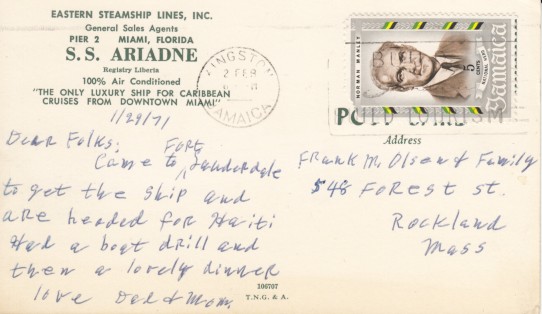 EASTERN STEAMSHIP LINES, INC.
General Sales Agents
PIER 2 MIAMI, FLORIDA
S. S. ARIADNE
Registry Liberia
100% Air Conditioned
"THE ONLY LUXURY SHIP FOR CARIBBEAN
CRUISES FROM DOWNTOWN MIAMI"
1/29/71
Dear Folks;
Fort
Came to Lauderdale
to get the ship and
are headed for Haiti
Had a boat drill and
then a lovely dinner
love Dad & Mom.
106707
T.N.G. & A.
KINGSTON
2 FEB
JAMAICA
NORMAN MANLEY
5
CENTS
NATIONAL HERO
Jamaica
Address
Frank M. Olsen & Family
548 Forest St.
Rockland
Mass